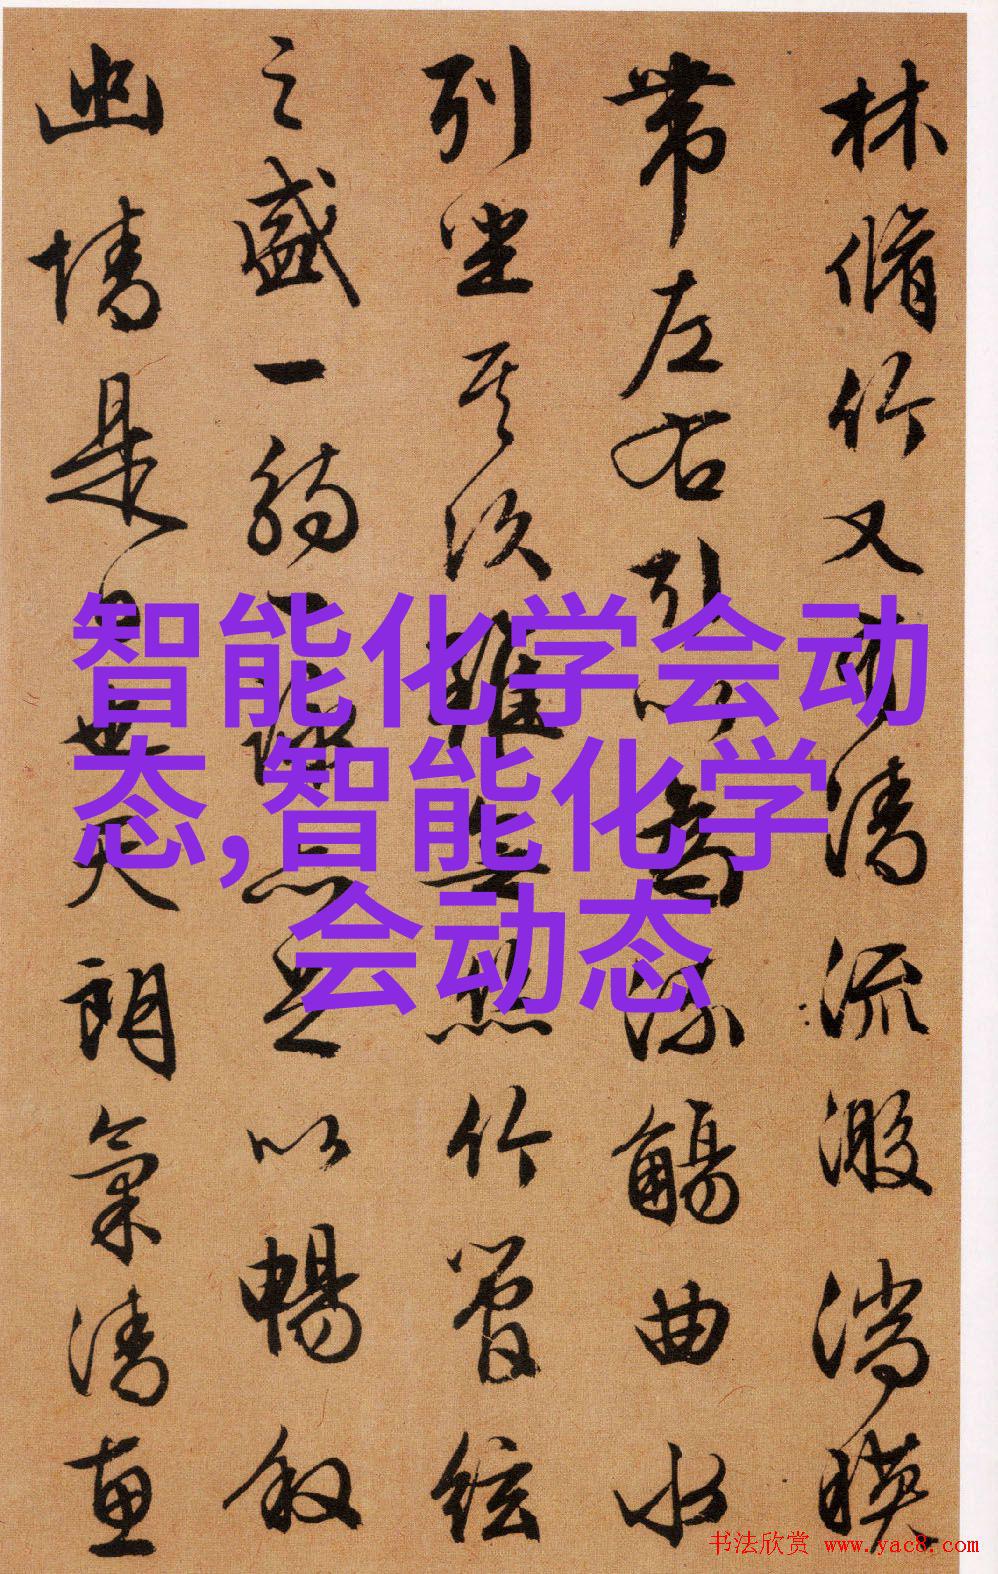 林脩竹又有清流激湍暎
帶左右引以為流觴曲水
列坐其次雖無絲竹管絃
之盛一觴一詠亦足以暢叙
幽情是日也天朗氣清惠
智能化学会动
态,智能化学
会动态
书法欣赏 www.yac8.com